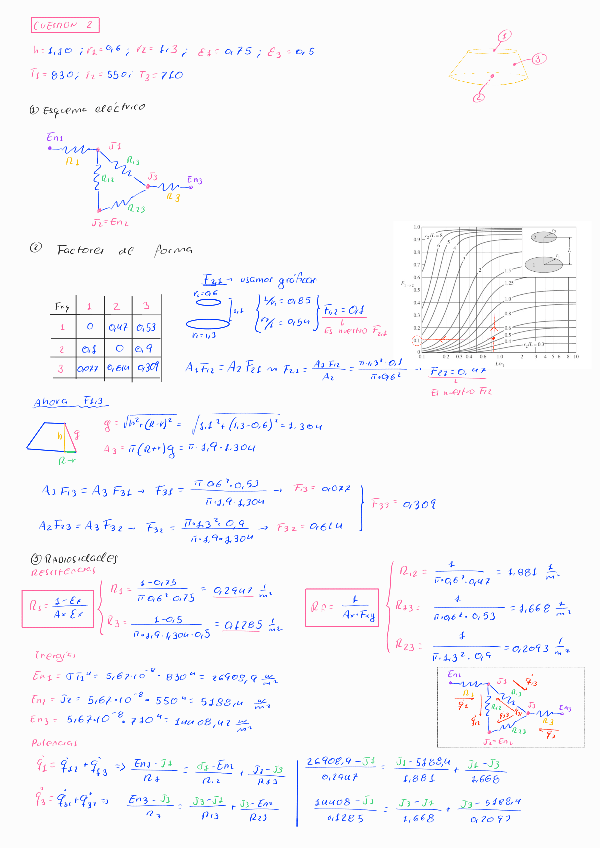 CUESTION 2
h=1,10 ; r1=0,6 ; r2=1,3 ; ε1=0,75 ; ε3=0,5
T1=830; T2=550; T3=710
1
3
2
① Esquema eléctrico
En1
J1
R1
R13
R12
J3
En3
R3
R23
J2=En2
② Factores de forma
F2,1 → usamos gráficas
r1=0,6
1,1
r2=1,3
L/r1 = 0,85
r2/L = 0,54
F1,2 = 0,1
Es nuestro F2,1
Fxy 1 2 3
1 0 0,47 0,53
2 0,1 0 0,9
3 0,077 0,614 0,309
A1F12 = A2F21 → F21 = A1F12/A2 = π·1,3²·0,1/π·0,6² → F21 = 0,47
Es nuestro F12
Ahora F1,3
h
g
R-r
g = √h²+(R-r)² = √1,1²+(1,3-0,6)² = 1,304
A3 = π(R+r)g = π·1,9·1,304
A1F13 = A3F31 → F31 = π0,6²·0,53/π·1,9·1,304 → F31 = 0,077
F33 = 0,309
A2F23 = A3F32 → F32 = π·1,3²·0,9/π·1,9·1,304 → F32 = 0,614
③ RADIOSIDADES
RESISTENCIAS
R1 = 1-0,75/π0,6²·0,75 = 0,2947 1/m²
R3 = 1-0,5/π·1,9·1,304·0,5 = 0,1285 1/m²
R12 = 1/π·0,6²·0,47 = 1,881 1/m²
R13 = 1/π·0,6²·0,53 = 1,668 1/m²
R23 = 1/π·1,3²·0,9 = 0,2093 1/m²
Energías
En1 = σT1⁴ = 5,67·10⁻⁸·830⁴ = 26908,9 W/m²
En2 = J2 = 5,67·10⁻⁸·550⁴ = 5188,4 W/m²
En3 = 5,67·10⁻⁸·710⁴ = 14408,47 W/m²
Potencias
q̇1 = q̇12 + q̇13 ⇒ En1-J1/R1 = J1-En2/R12 + J1-J3/R13
26908,9-J1/0,2947 = J1-5188,4/1,881 + J1-J3/1,668
q̇3 = q̇31 + q̇32 ⇒ En3-J3/R3 = J3-J1/R13 + J3-En2/R23
14408-J3/0,1285 = J3-J1/1,668 + J3-5188,4/0,2093